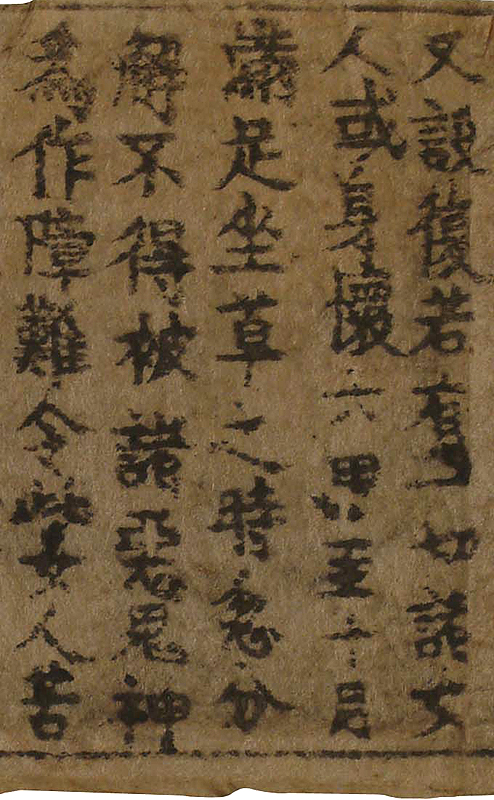 又設復若有一切諸女
人或身懷六甲至十月
滿足坐草之時忽分
解不得被諸惡鬼神
為作障難令此女人苦